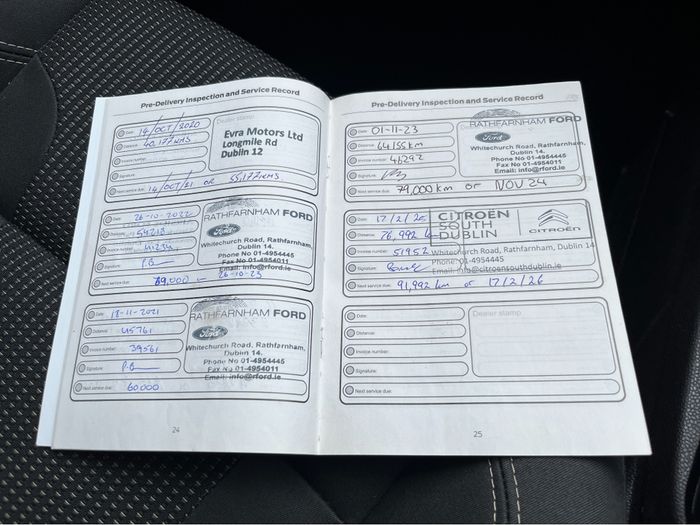 Pre-Delivery Inspection and Service Record
Date: 14/OCT/2020
Dealer stamp
Distance: 40,177 KMS
Evra Motors Ltd
Longmile Rd
Dublin 12
Invoice number:
Signature:
Next service due: 14/OCT/21 OR 55,177 KMS
Date: 26-10-2022
RATHFARNHAM FORD
Distance: 54218
Ford
Invoice number:
Whitechurch Road, Rathfarnham,
Dublin 14.
Phone No 01-4954445
Fax No 01-4954011
Email: info@rford.ie
Signature: P.B
Next service due: 69,000 - 26-10-23
Date: 18-11-2021
RATHFARNHAM FORD
Distance: 45761
Ford
Invoice number: 39561
Whitechurch Road, Rathfarnham,
Dublin 14.
Phone No 01-4954445
Fax No 01-4954011
Email: info@rford.ie
Signature: P.B
Next service due: 60000
24
Pre-Delivery Inspection and Service Record
Date: 01-11-23
RATHFARNHAM FORD
Distance: 64155km
Ford
Invoice number: 46292
Whitechurch Road, Rathfarnham,
Dublin 14.
Phone No 01-4954445
Fax No 01-4954011
Email: info@rford.ie
Signature:
Next service due: 79,000 km or NOV 24
Date: 17/2/25
CITROËN
SOUTH
DUBLIN
CITROËN
Distance: 76,992 km
Invoice number: 51952
Whitechurch Road, Rathfarnham, Dublin 14
Phone 01-4954445
Email: info@citroensouthdublin.ie
Signature:
Next service due: 91,992 km or 17/2/26
Date:
Dealer stamp
Distance:
Invoice number:
Signature:
Next service due:
25